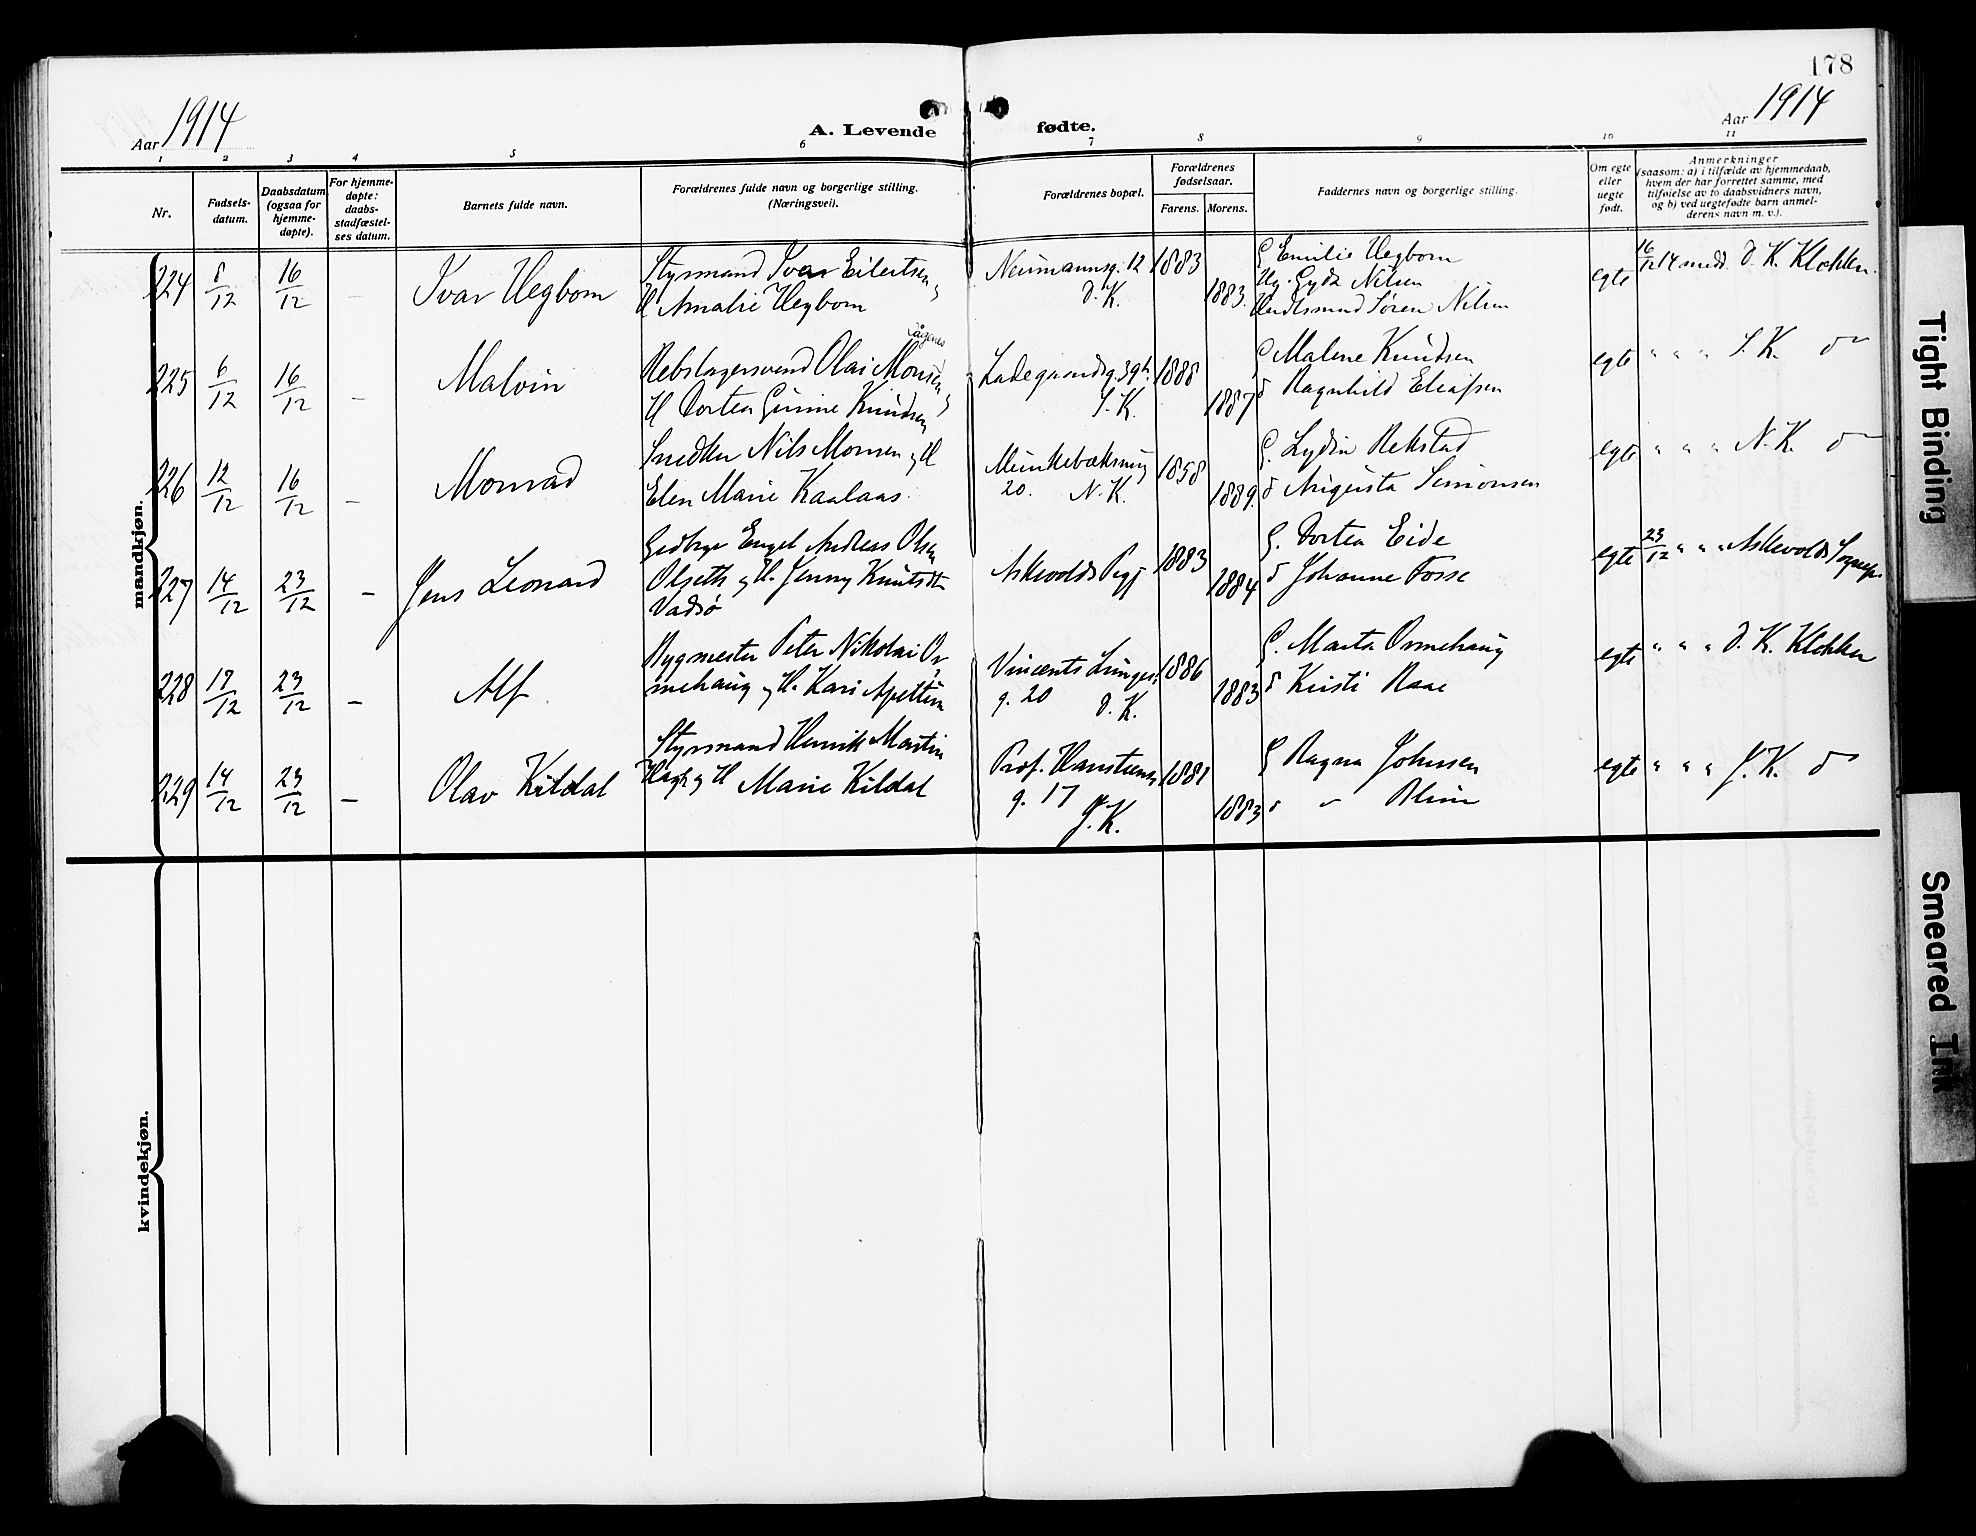 178
Aar 1914
A. Levende fødte.
Aar 1914
1 2 3 4 5 6 7 8 9 10 11
Nr.
Fødsels-
datum.
Daabsdatum
(ogsaa for
hjemme-
døpte).
For hjemme-
døpte:
daabs-
stadfæstel-
ses datum.
Barnets fulde navn.
Forældrenes fulde navn og borgerlige stilling.
(Næringsvei).
Forældrenes bopæl.
Forældrenes
fødselsaar.
Farens. Morens.
Faddernes navn og borgerlige stilling.
Om egte
eller
uegte
født.
Anmerkninger
(saasom: a) i tilfælde av hjemmedaab,
hvem der har forrettet samme, med
tilføielse av to daabsvidners navn,
og b) ved uegtefødte barn anmel-
derens navn m. v.).
mandkjøn.
224 8/12 16/12 – Ivar Hegbom
Styrmand Ivar Eilertsen
H Amalie Hegbom
Neumannsg. 12
D. K.
1883 1883.
G Emilie Hegbom
Gyda Nilsen
Søren Nilsen
egte 16/12 14 medd. D. K. Klokker.
225 6/12 16/12 – Malvin
Rebslagersvend Olai Monsen
H Dortea Gurine Knudsen
Ladegaardsg. 39 b.
S. K.
1888 1887
G Malene Knudsen
d Ragnhild Eliassen
egte " " " S. K. do
226 12/12 16/12 – Monrad
Snedker Nils Monsen og H
Elen Marie Kaalaas.
Munkebæksmug
20. N. K.
1858 1889.
G. Lydia Rekstad
d Augusta Simonsen
egte " " " N. K. do
227 14/12 23/12 – Jens Leonard
Engel Andreas Olsen
Olseth og H. Jenny Knutsdtr
Vadsø
Askvolds Pgj
1883 1884
G. Dortea Eide
d Johanne Fosse
egte 23/12 " " Askvolds Sognepr.
228 12/12 23/12 – Alf
Bygmester Peter Nikolai Or-
mehaug og H. Kari Apeltun
Vincents Lunges.
g. 20 D. K.
1886 1883
G. Marta Ormehaug
d Kristi Raae
egte " " " D. K. Klokker
229 14/12 23/12 – Olav Kildal
Styrmand Henrik Martin
og H Marie Kildal
Prof. Hansteens
g. 17 J. K.
1881 1883
G Ragna Johnsen
d " Blum
egte " " " J. K. do
kvindekjøn.
Tight Binding
Smeared Ink